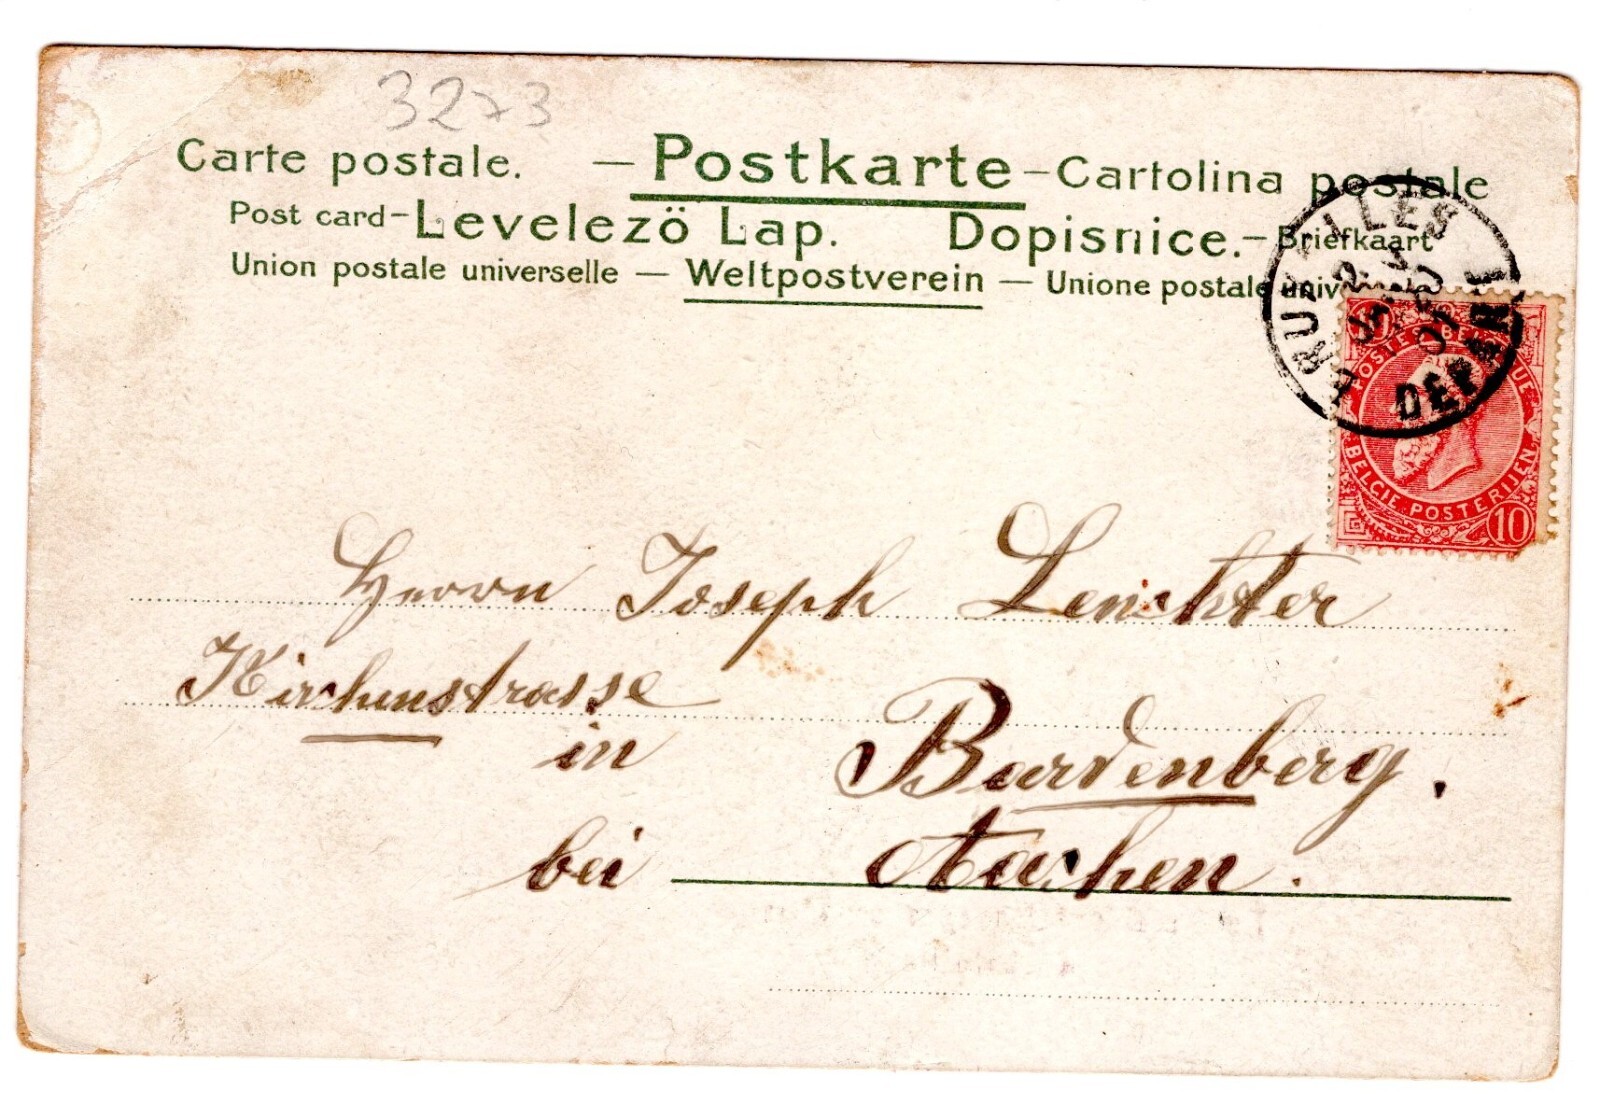 3273
Carte postale. — Postkarte — Cartolina postale
Post card – Levelezö Lap. Dopisnice. – Briefkaart
Union postale universelle — Weltpostverein — Unione postale
BRUXELLES
DEPART
10
POSTES BELGIQUE
BELGIE POSTERIJEN
10
Herrn Joseph
Kirchenstrasse
in Bardenberg.
bei Aachen.